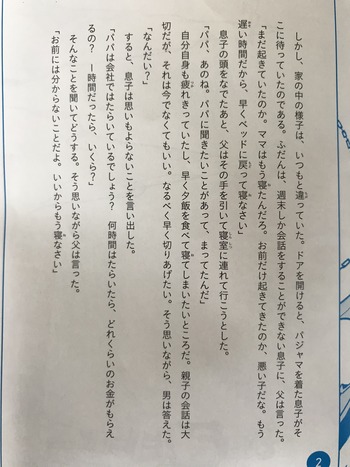 しかし、家の中の様子は、いつもと違っていた。ドアを開けると、パジャマを着た息子がそ
こに待っていたのである。ふだんは、週末しか会話をすることができない息子に、父は言った。
「まだ起きていたのか。ママはもう寝たんだろ。お前だけ起きてきたのか、悪い子だな。もう
遅い時間だから、早くベッドに戻って寝なさい」
息子の頭をなでたあと、父はその手を引いて寝室に連れて行こうとした。
「パパ、あのね。パパに聞きたいことがあって、まってたんだ」
自分自身も疲れきっていたし、早く夕飯を食べて寝てしまいたいところだ。親子の会話は大
切だが、それは今でなくてもいい。なるべく早く切りあげたい。そう思いながら、男は答えた。
「なんだい?」
すると、息子は思いもよらないことを言い出した。
「パパは会社ではたらいているでしょう? 何時間はたらいたら、どれくらいのお金がもらえ
るの? 一時間だったら、いくら?」
そんなことを聞いてどうする。そう思いながら父は言った。
「お前には分からないことだよ。いいからもう寝なさい」
2